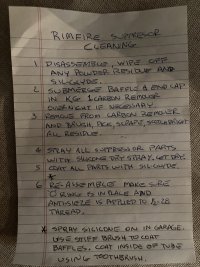 RIMFIRE SUPRESSOR
CLEANING
1. DISASSEMBLE, WIPE OFF
ANY POWDER RESIDUE AND
SILGLYDE.
2 SUBMERGE BAFFLE & END CAP
IN KG 1 CARBON REMOVER
OVERNIGHT IF NECESSARY.
3 REMOVE FROM CARBON REMOVER
AND BRUSH, PICK, SCRAPE,
ALL RESIDUE.
4 SPRAY ALL SUPRESSOR PARTS
WITH SILICONE DRY SPRAY, LET DRY.
5 COAT ALL PARTS WITH SILGLYDE.
*
6 RE-ASSEMBLE MAKE SURE
O RING IS IN PLACE AND
ANTISIEZE IS APPLIED TO
THREAD.
* SPRAY SILICONE ON IN GARAGE.
USE STIFF BRUSH TO COAT
BAFFLES. COAT INSIDE OF TUBE
USING TOOTHBRUSH.